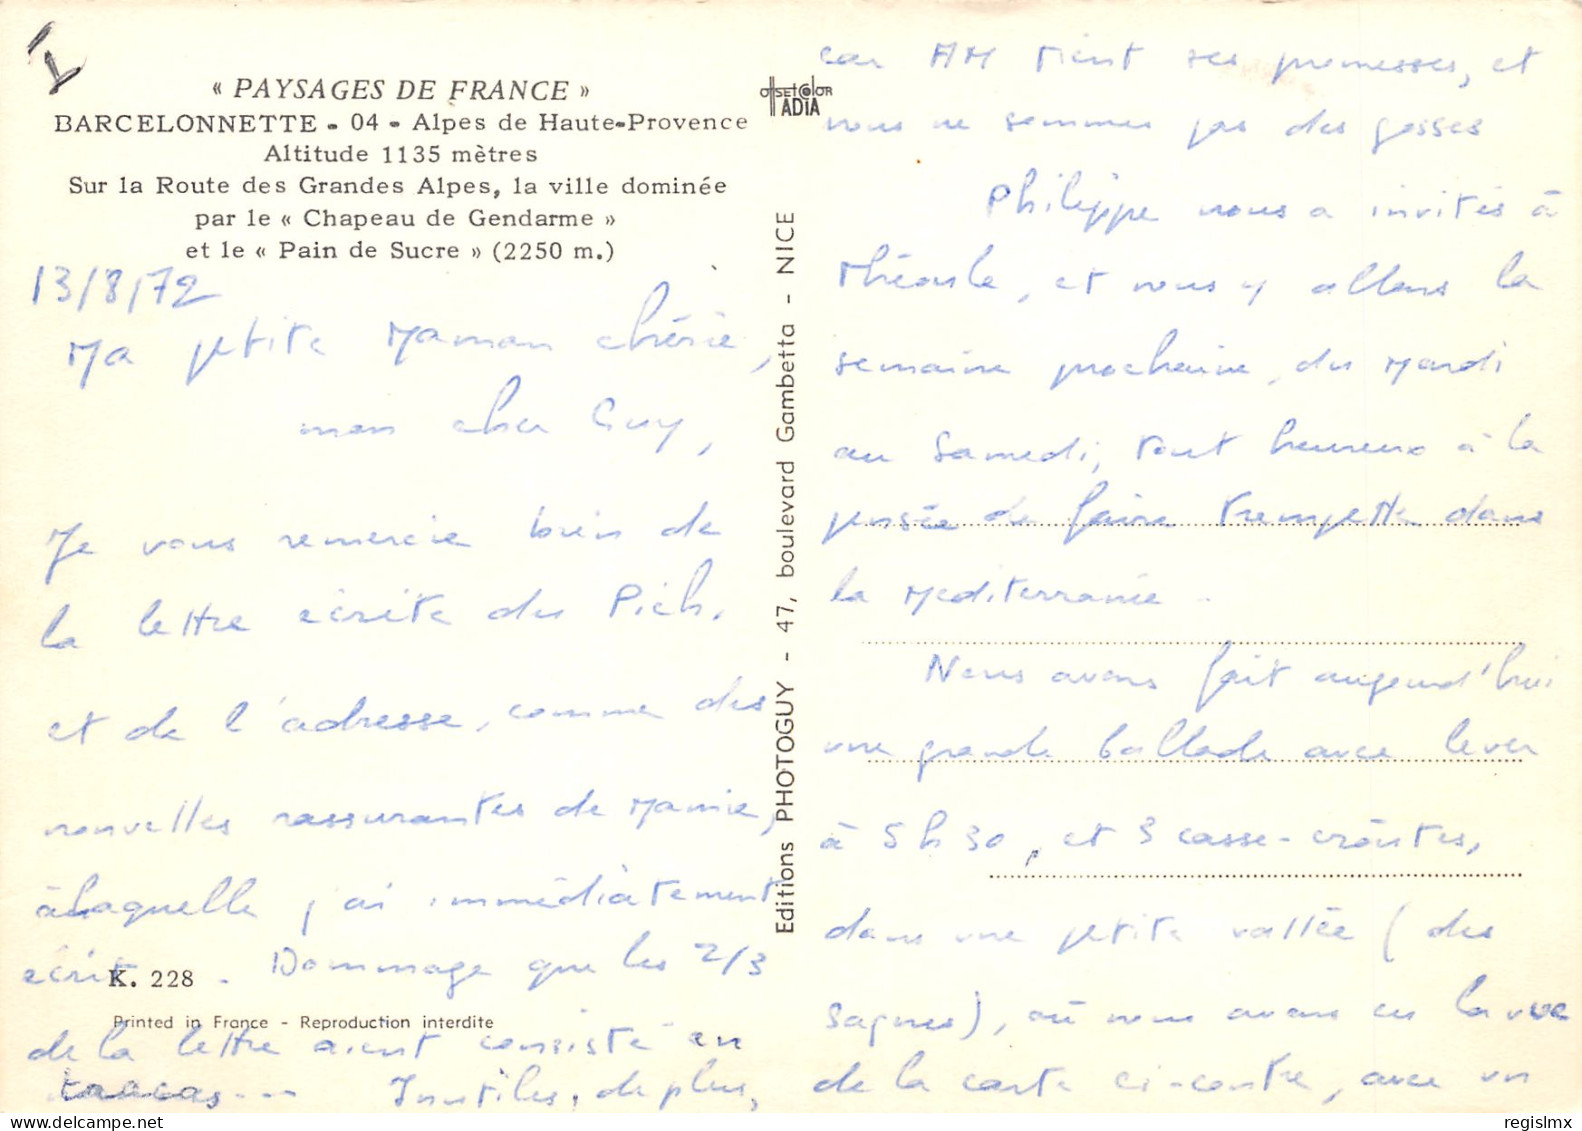 I
« PAYSAGES DE FRANCE »
BARCELONNETTE - 04 - Alpes de Haute-Provence
Altitude 1135 mètres
Sur la Route des Grandes Alpes, la ville dominée
par le « Chapeau de Gendarme »
et le « Pain de Sucre » (2250 m.)
13/8/72
Ma petite Maman chérie,
mon cher Guy,
Je vous remercie bien de
la lettre écrite des Pich.
et de l'adresse, comme des
nouvelles rassurantes de Mamie,
à laquelle j'ai immédiatement
écrit. Dommage que les 2/3
K. 228
Printed in France - Reproduction interdite
de la lettre aient consisté en
tracas... Inutiles, de plus,
OFFSETCOLOR
ADIA
Editions PHOTOGUY - 47, boulevard Gambetta - NICE
car AM tient ses promesses, et
nous ne sommes pas des gosses
Philippe nous a invités à
Théoule, et nous y allons la
semaine prochaine, du Mardi
au Samedi, tout heureux à la
pensée de faire trempette dans
la Mediterranée.
Nous avons fait aujourd'hui
une grande ballade avec lever
à 5h30, et 3 casse-croûtes,
dans une petite vallée (des
Sagnes), où nous avons eu la vue
de la carte ci-contre, avec un
regislmx